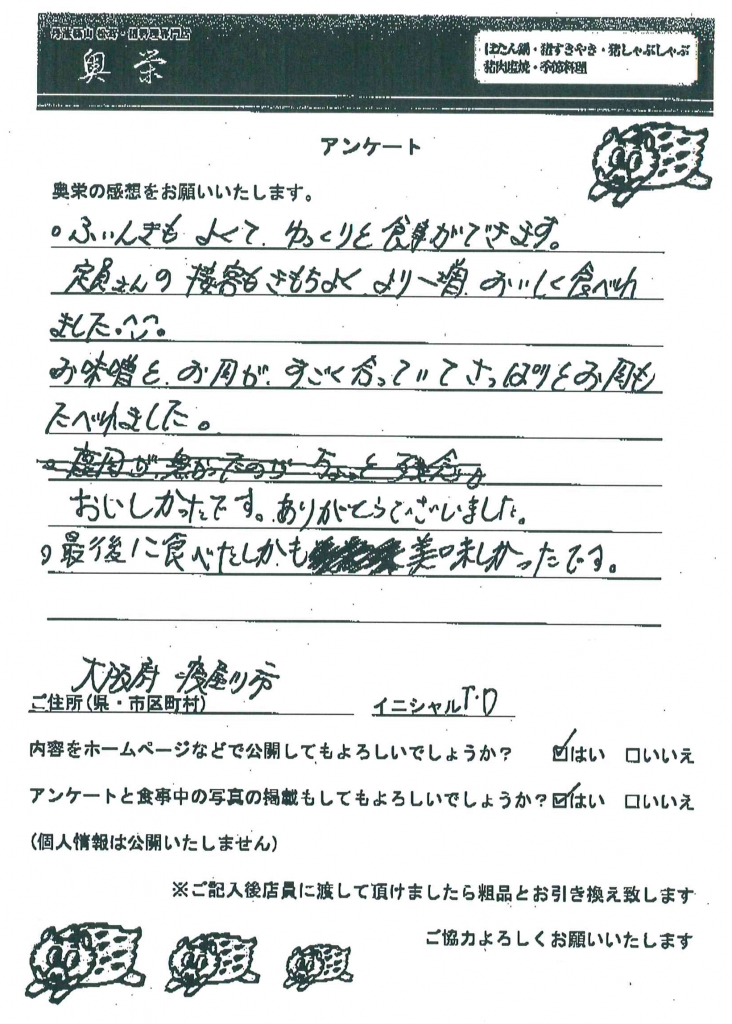 丹波篠山 松茸・猪料理専門店
奥栄
ぼたん鍋・猪すきやき・猪しゃぶしゃぶ
猪肉塩焼・季節料理
アンケート
奥栄の感想をお願いいたします。
○ふいんきも よくて、ゆっくりと食事ができます。
定員さんの 接客もきもちよく より一増 おいしく食べれ
ました.^^。
お味噌と、お肉が、すごく合っていてさっぱりとお肉も
たべれました。
おいしかったです。ありがとうございました。
○最後に食べたしかも 美味しかったです。
大阪府 寝屋川市
ご住所(県・市区町村)
イニシャル T・D
内容をホームページなどで公開してもよろしいでしょうか? ☑はい □いいえ
アンケートと食事中の写真の掲載もしてもよろしいでしょうか?☑はい □いいえ
(個人情報は公開いたしません)
※ご記入後店員に渡して頂けましたら粗品とお引き換え致します
ご協力よろしくお願いいたします